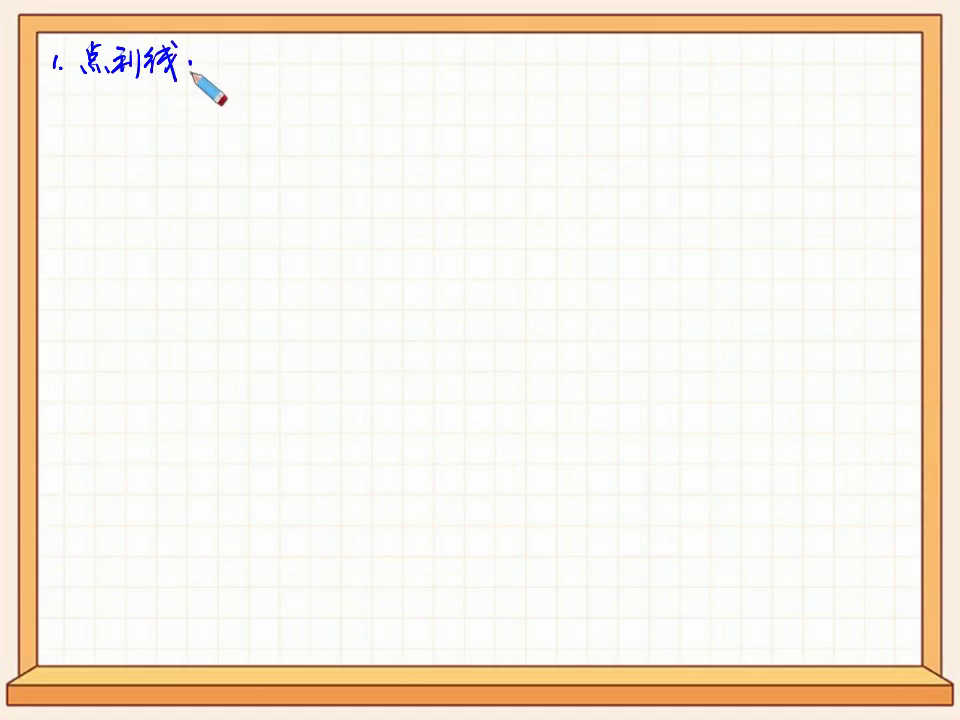 1. 点到线: